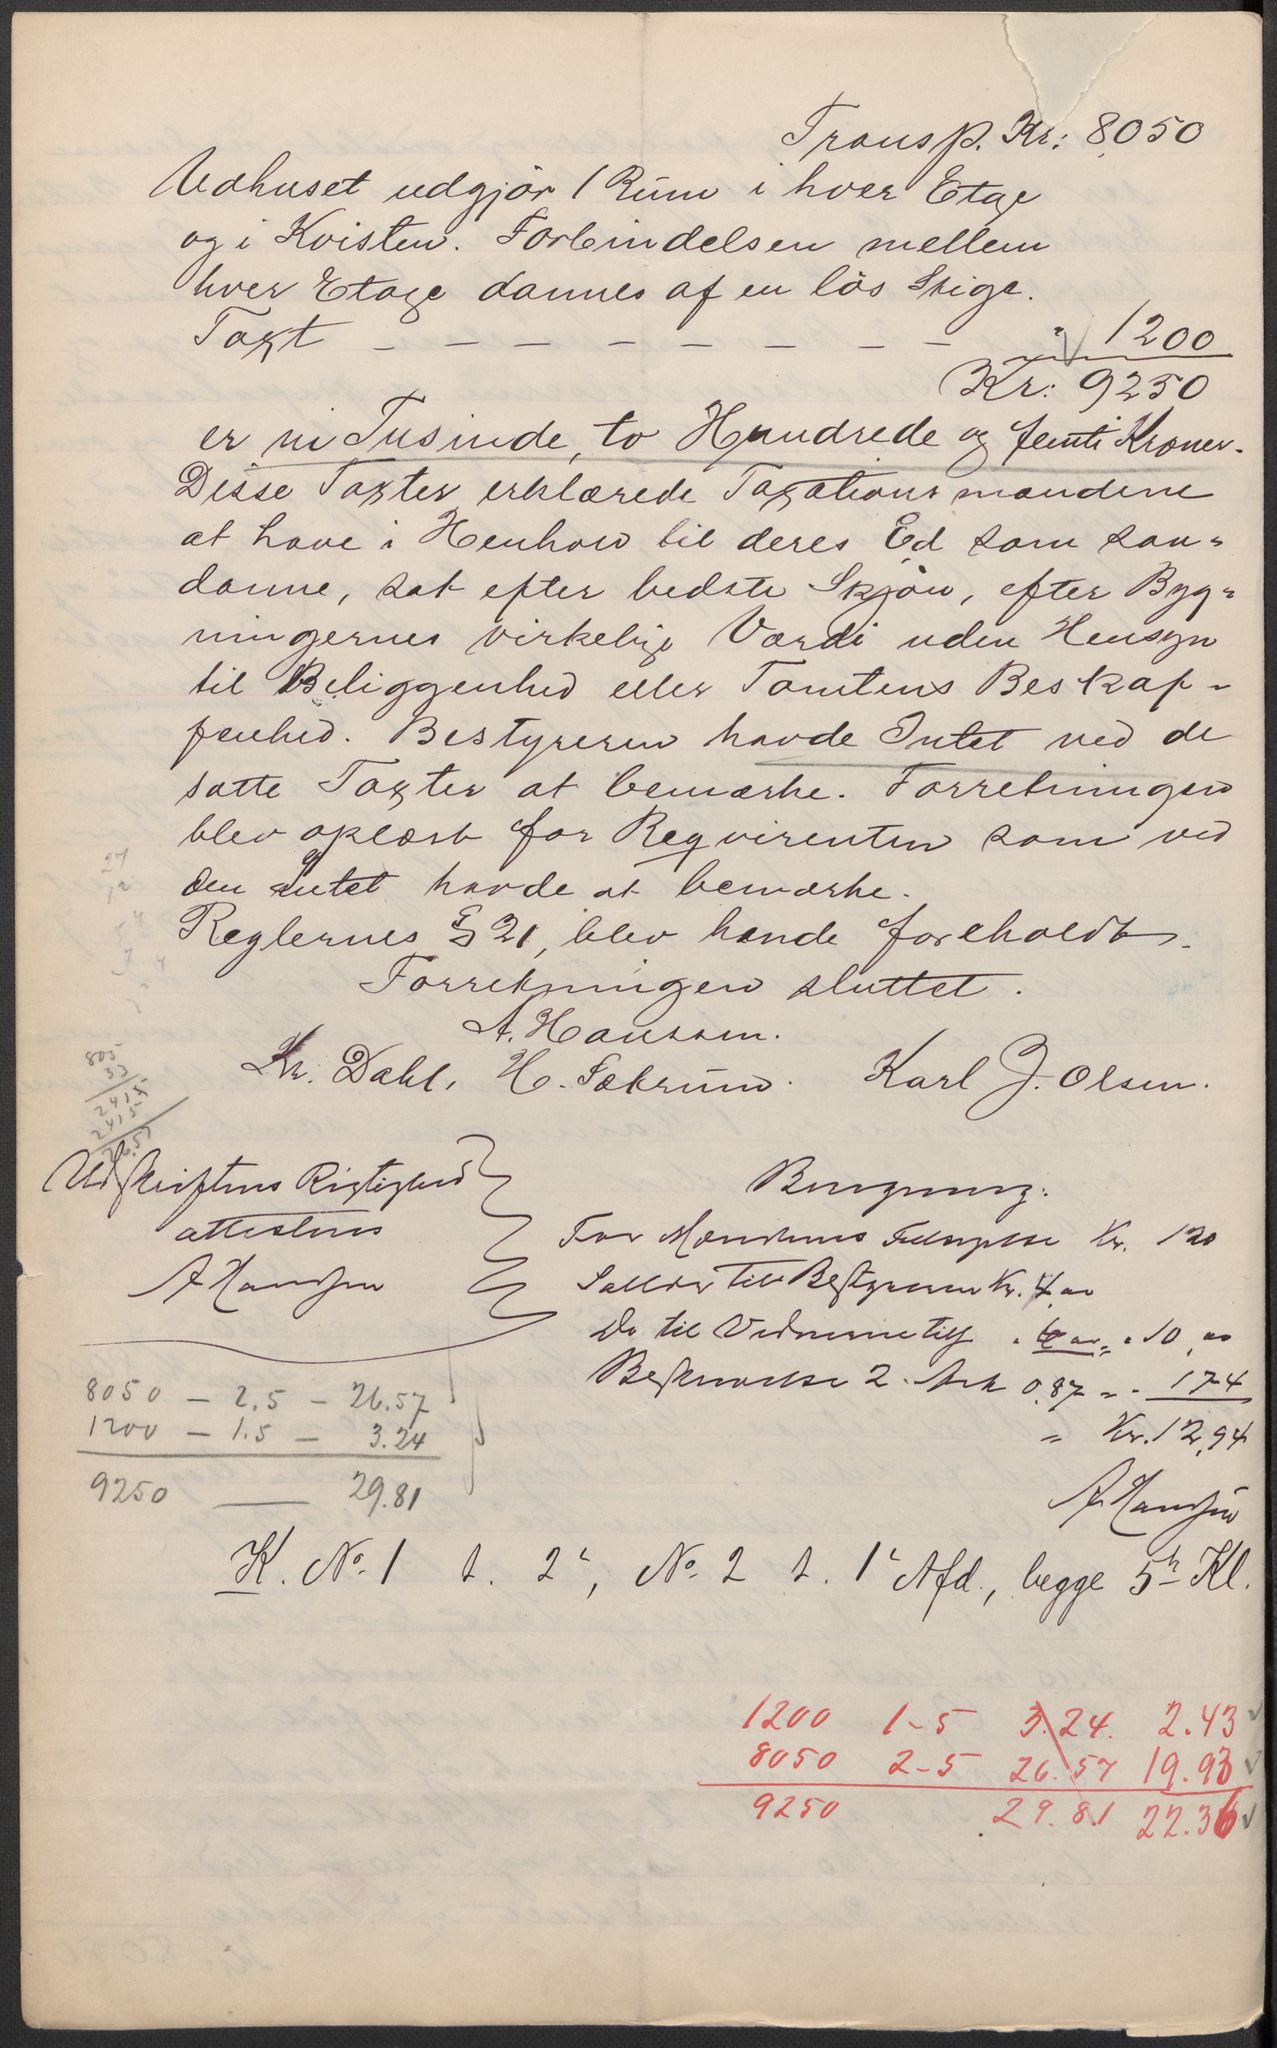 Transp. Kr: 8050
Vedhuset udgjør 1 Rum i hver Etage
og i Kvisten. Forbindelsen mellem
hver Etage dannes af en løs Stige.
Taxt — — — — — — — — " 1200
Kr: 9250
er ni Tusinde, to Hundrede og femti Kroner.
Disse Taxter erklærede Taxationsmændene
at have i Henhold til deres Ed som saa-
danne, sat efter bedste Skjøn, efter Byg-
ningernes virkelige Værdi uden Hensyn
til Beliggenhed eller Tomtens Beskaf-
fenhed. Bestyreren havde Intet ved de
satte Taxter at bemærke. Forretningen
blev oplæst for Reqvirenten som ved
den intet havde at bemærke.
Reglernes § 21, blev hende foreholdt.
Forretningen sluttet.
A. Hanssen.
Kr. Dahl, H. Sækrum. Karl J. Olsen.
805
33
2415
2415
26.57
Udskriftens Rigtighed
attesteres
A Hanssen
Beregning:
For Mændenes Kr. 1.20
Salær til Bestyreren Kr. 4,00
Do til Vidnerne " 6 00 " " 10,00
Beskrivelse 2 Ark 0.87 " " 1 74
" Kr. 12,94
A. Hanssen
8050 — 2.5 — 26.57
1200 — 1.5 — 3.24
9250 — 29.81
K. No. 1 t. 2', No. 2 t. 1' Afd., begge 5te Kl.
1200 1-5 3.24. 2.43
8050 2-5 26.57 19.93
9250 29.81 22.36